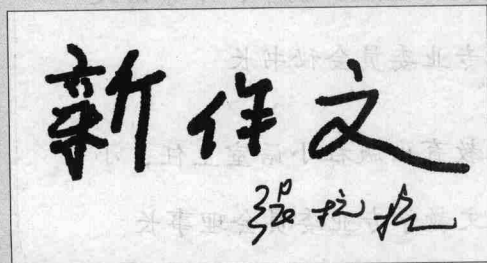 新作文
张抗抗